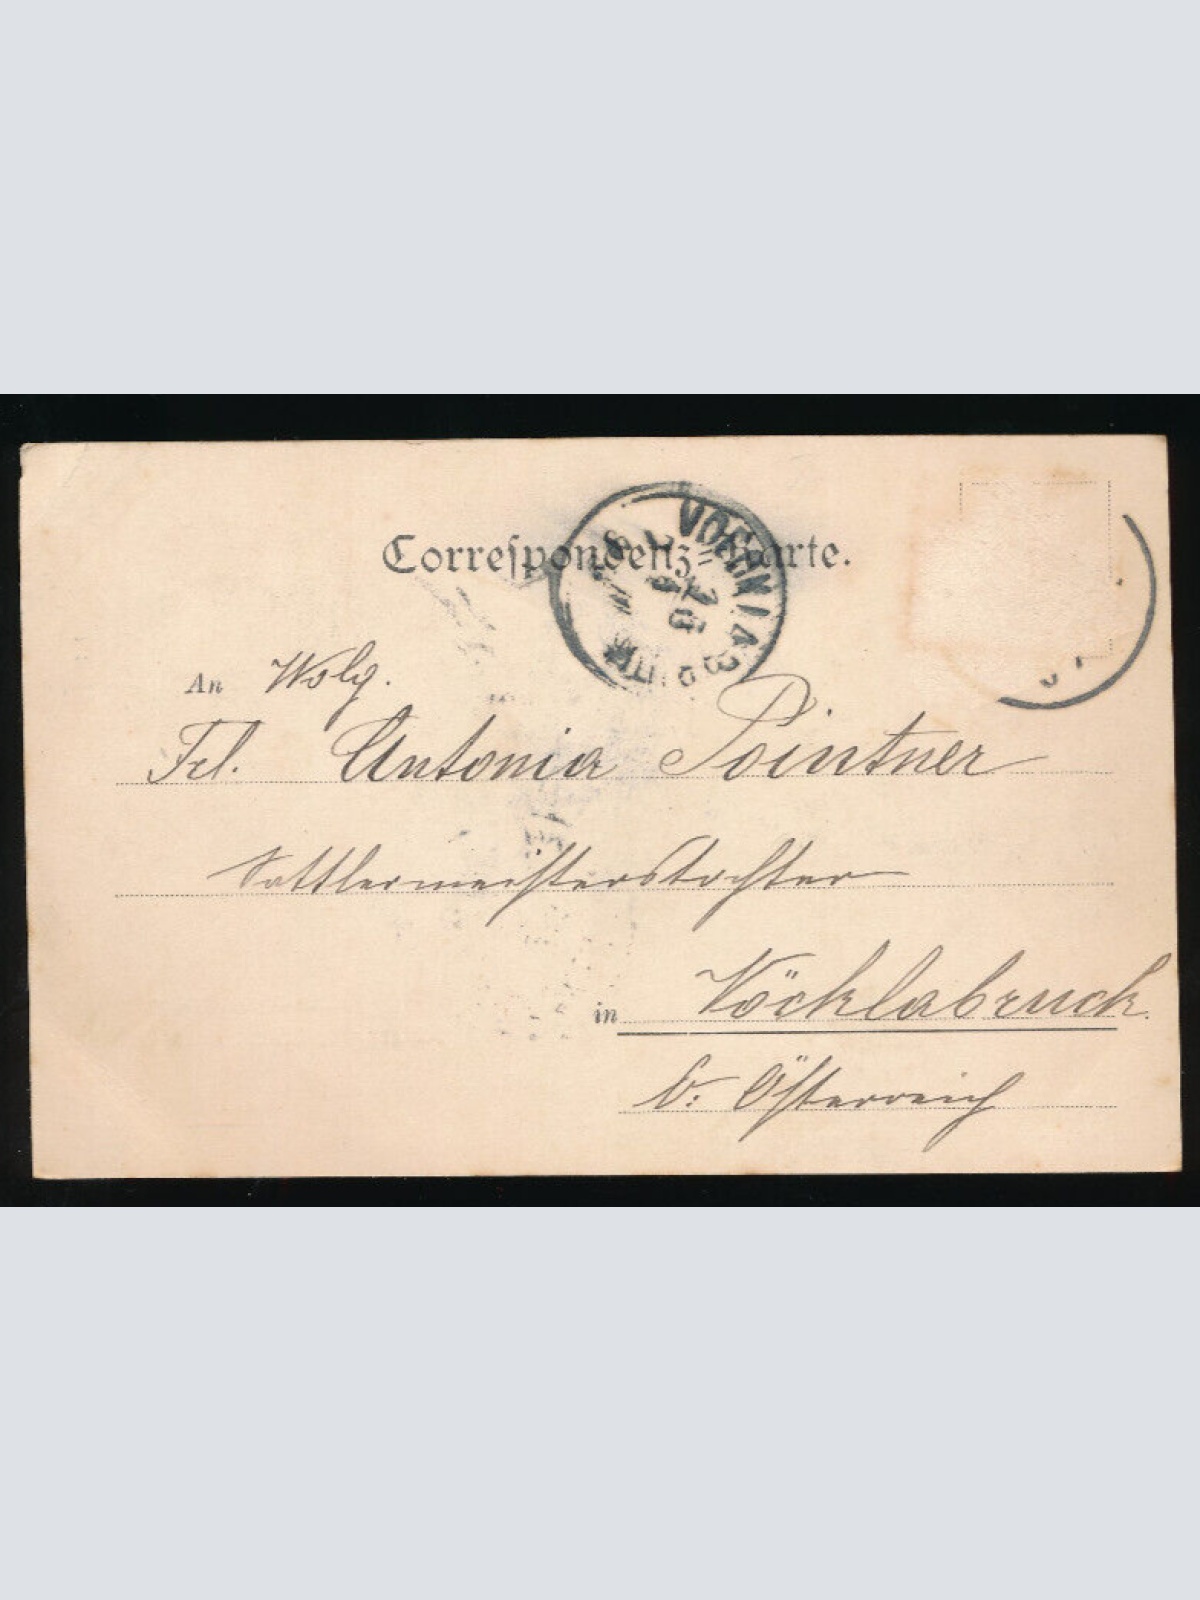 Correspondenz-Karte.
An Wolg.
Frl. Antonia Pointner
Sattlermeisterstochter
in Vöcklabruck.
O: Österreich